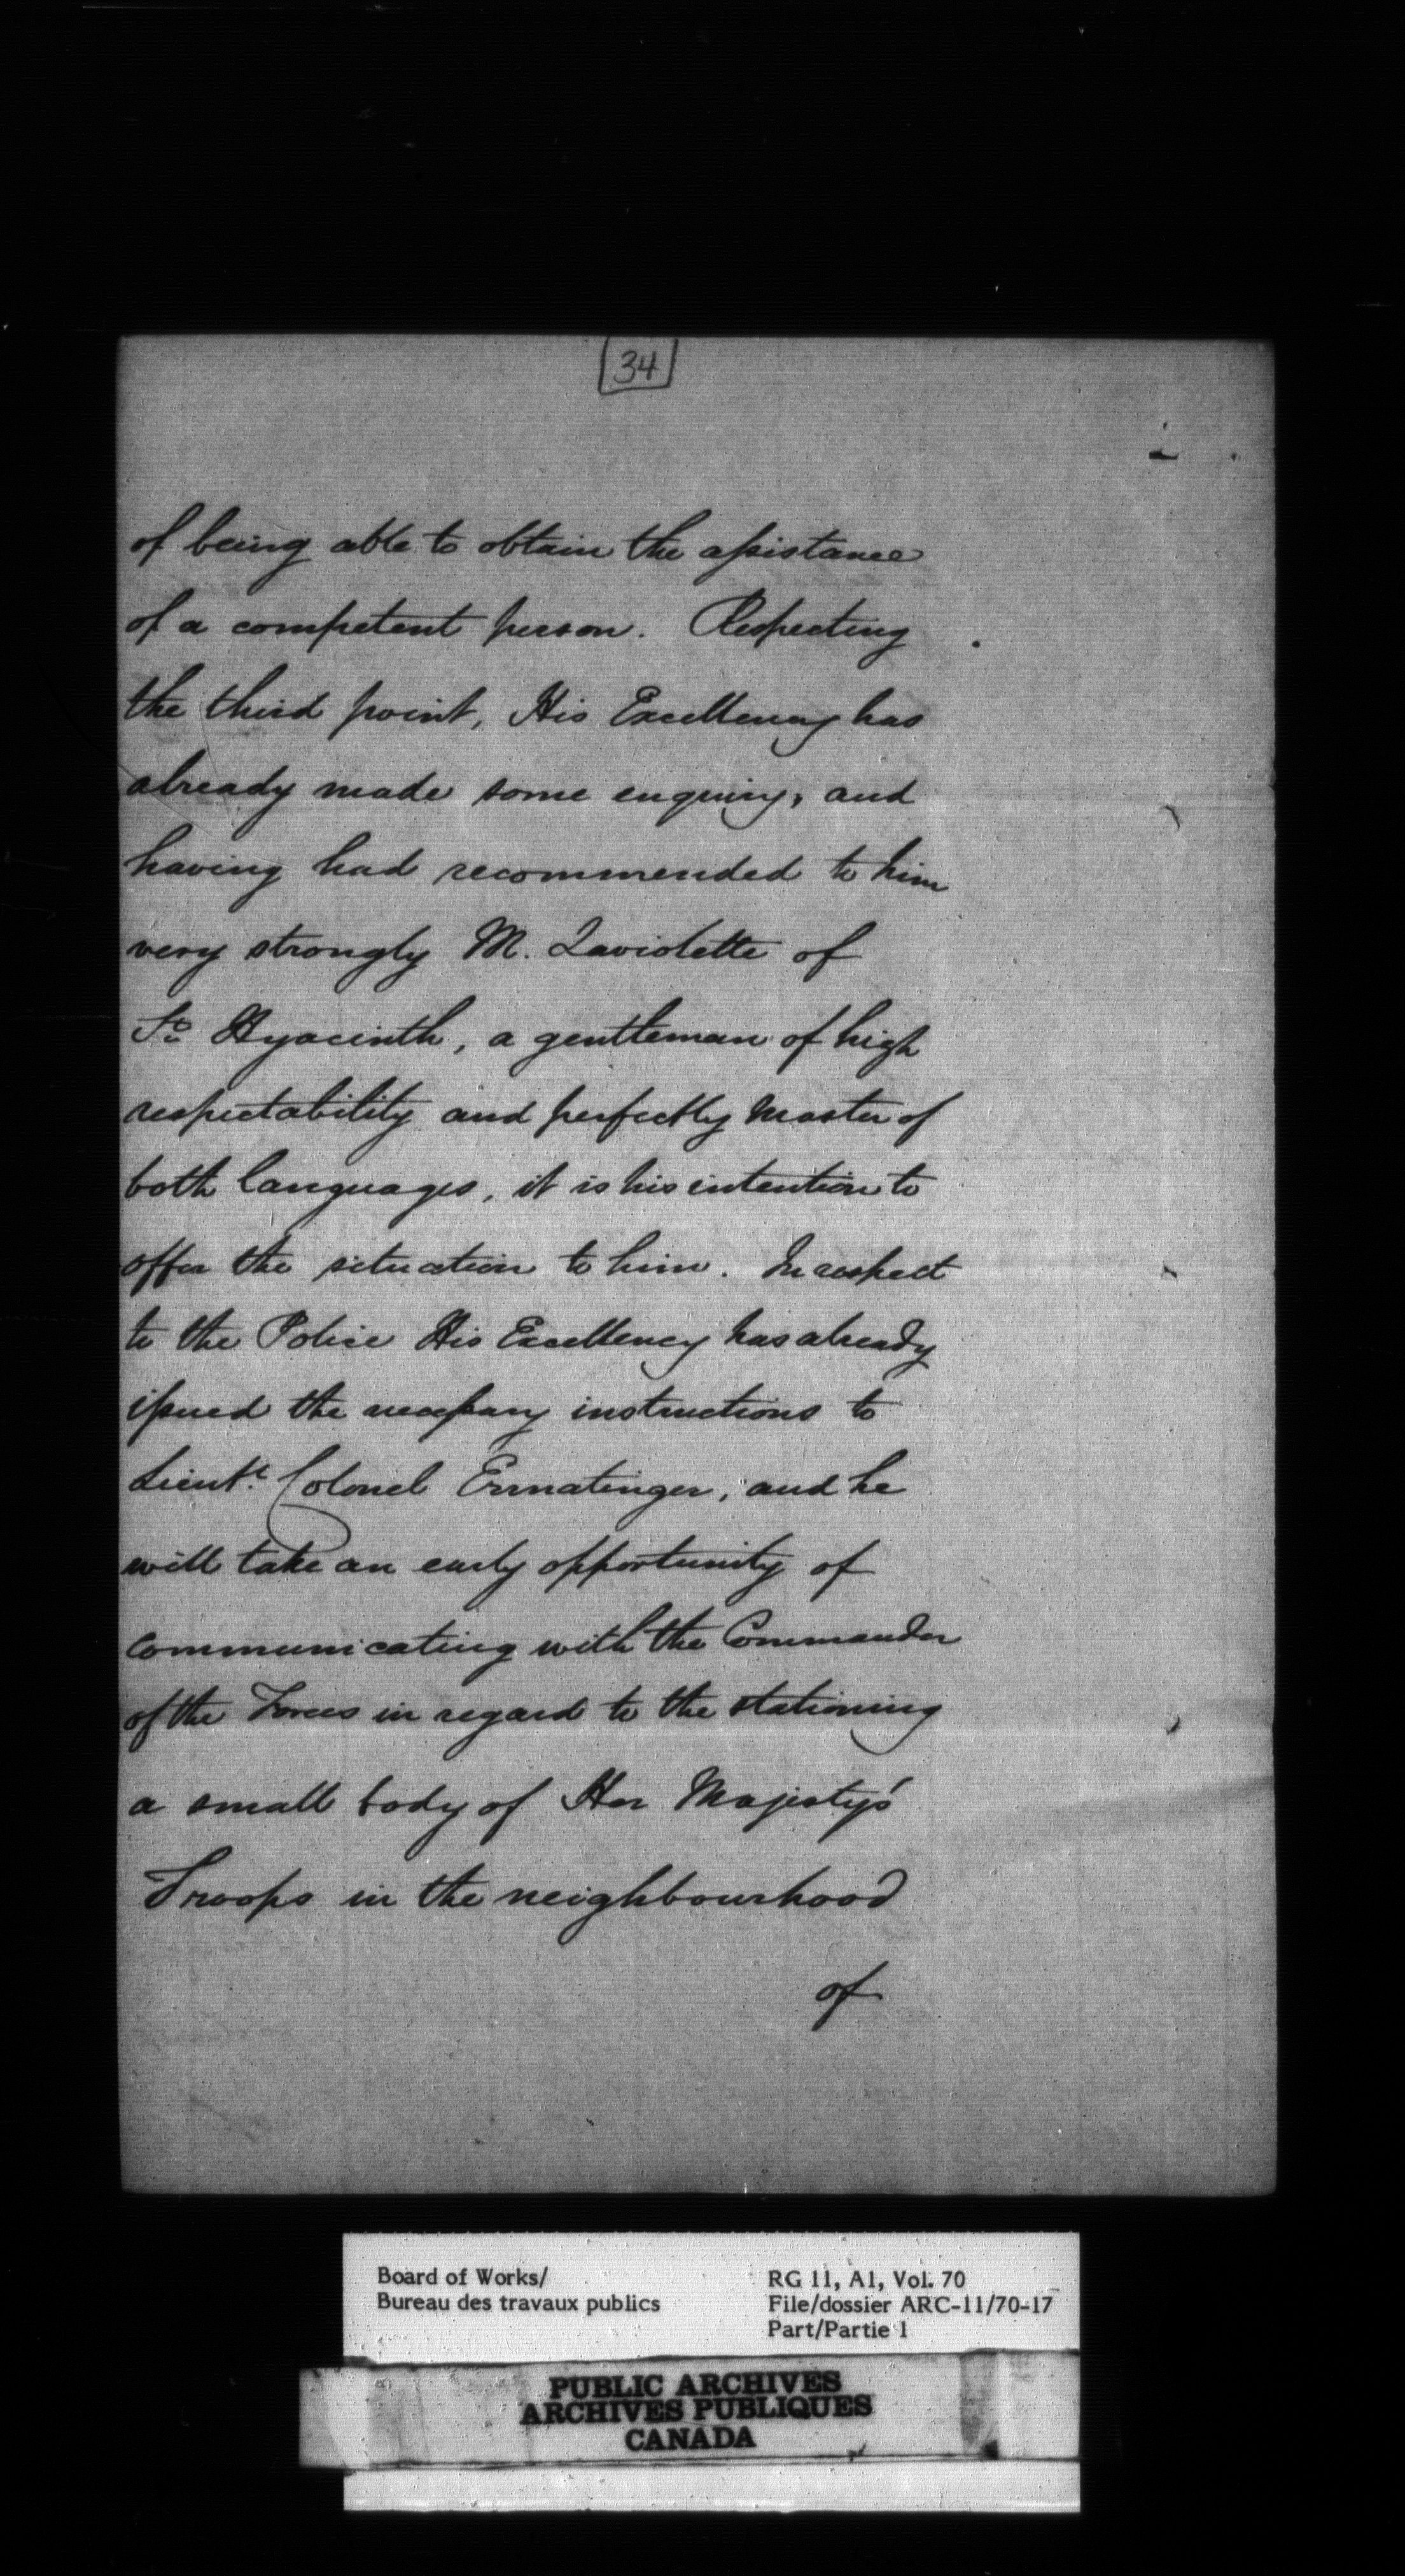 34
of being able to obtain the assistance
of a competent person. Respecting
the third point, His Excellency has
already made some enquiry, and
having had recommended to him
very strongly M. Laviolette of
St. Hyacinth, a gentleman of high
respectability and perfectly master of
both languages, it is his intention to
offer the situation to him. In respect
to the Police His Excellency has already
issued the necessary instructions to
Lieut. Colonel Ermatinger, and he
will take an early opportunity of
communicating with the Commander
of the Forces in regard to the stationing
a small body of Her Majesty's
Troops in the neighbourhood
of
Board of Works/
Bureau des travaux publics
RG 11, A1, Vol. 70
File/dossier ARC-11/70-17
Part/Partie 1
PUBLIC ARCHIVES
ARCHIVES PUBLIQUES
CANADA